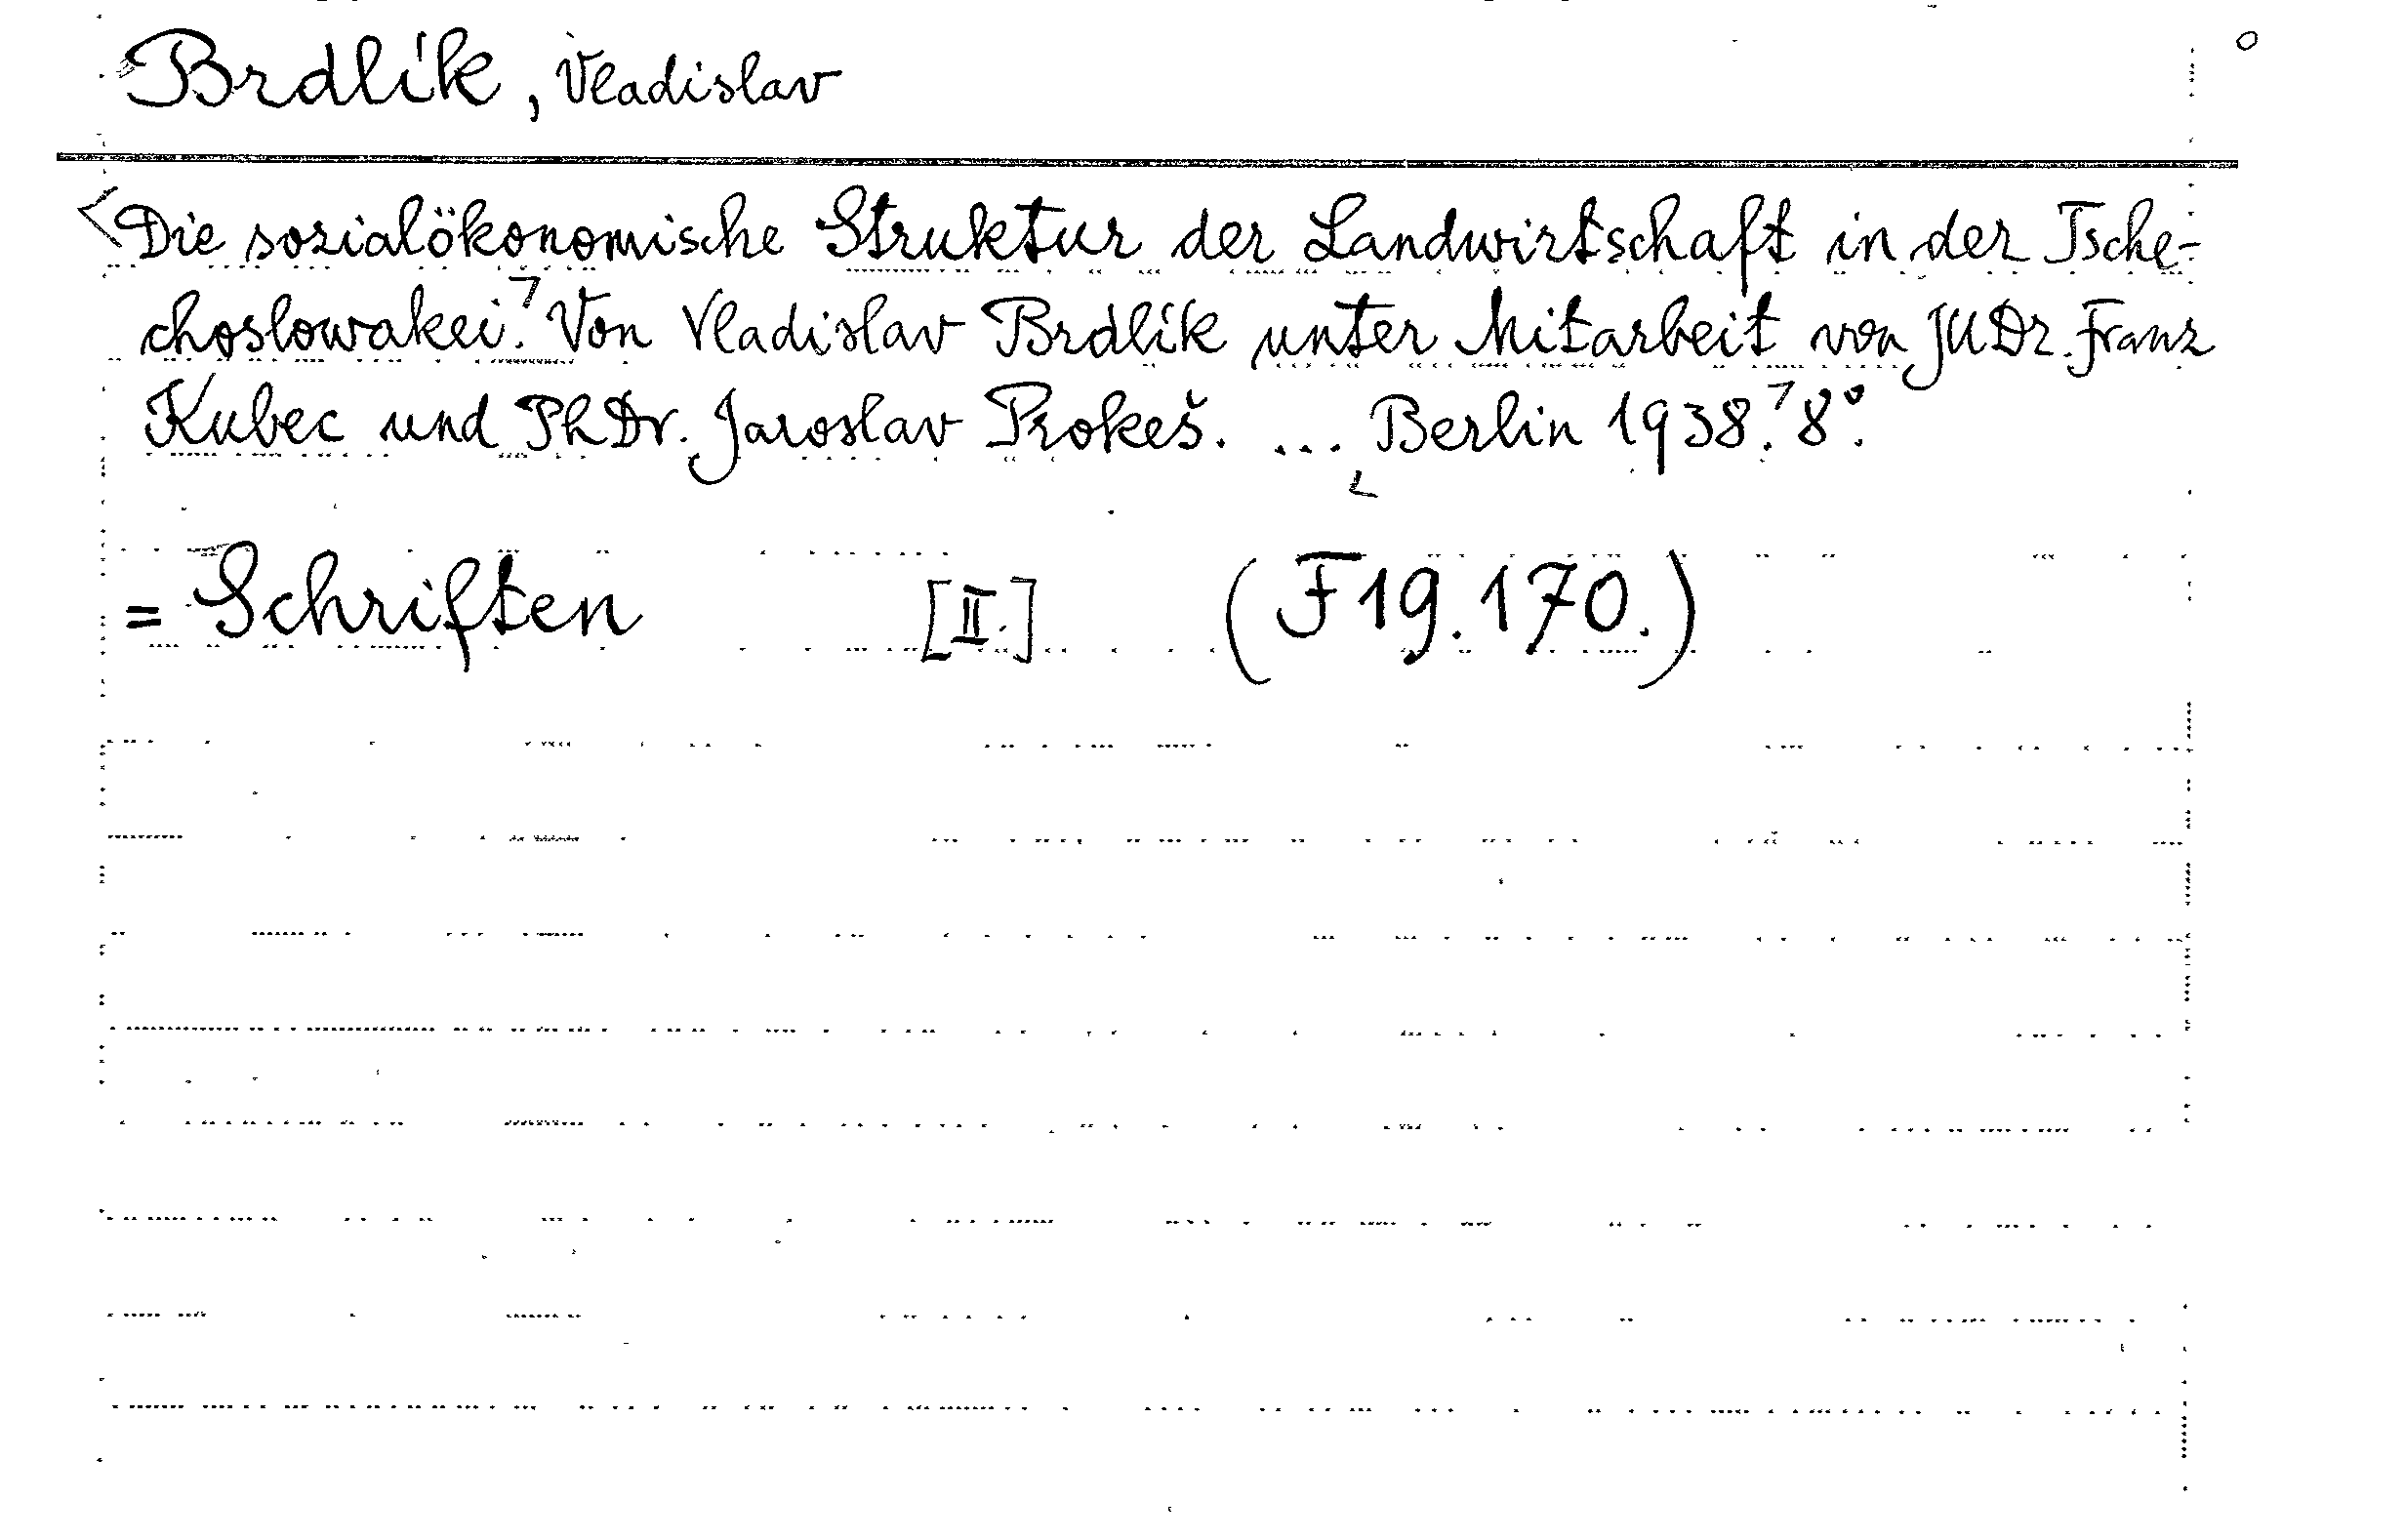 Brdlík, Vladislav
Die sozialökonomische Struktur der Landwirtschaft in der Tsche-
choslowakei. Von Vladislav Brdlík unter Mitarbeit von JUDr. Franz
Kubec und PhDr. Jaroslav Prokeš. ... Berlin 1938. 8°.
= Schriften [II.] (F19.170.)